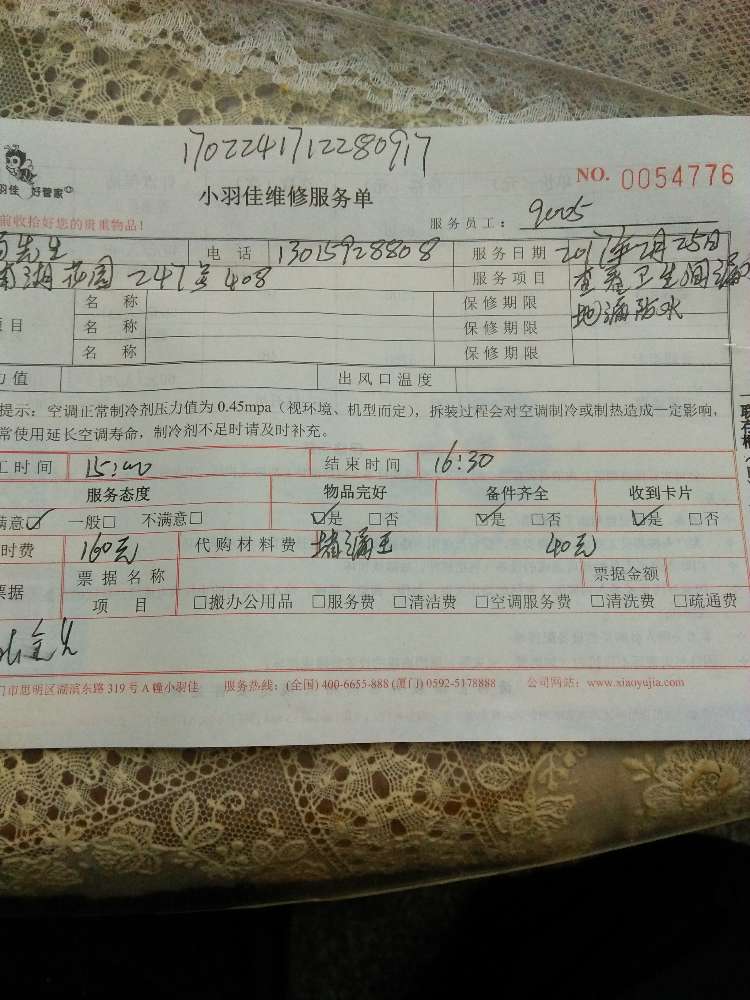 170224171228091​7
NO. 0054776
羽佳 好管家
小羽佳维修服务单
前收拾好您的贵重物品!
服务员工: 9005
先生 电话 13015928808 服务日期 2017年2月25日
南湖花园247号408 服务项目 查看卫生间漏水
名称 保修期限 地漏防水
项目 名称 保修期限
名称 保修期限
力值 出风口温度
提示：空调正常制冷剂压力值为0.45mpa（视环境、机型而定），拆装过程会对空调制冷或制热造成一定影响，
常使用延长空调寿命，制冷剂不足时请及时补充。
工时间 15:00 结束时间 16:30
服务态度 物品完好 备件齐全 收到卡片
满意☑ 一般□ 不满意□ ☑是 □否 ☑是 □否 ☑是 □否
时费 160元 代购材料费 堵漏王 40元
票据 票据名称 票据金额
项目 □搬办公用品 □服务费 □清洁费 □空调服务费 □清洗费 □疏通费
门市思明区湖滨东路319号A幢小羽佳 服务热线：(全国) 400-6655-888 (厦门) 0592-5178888 公司网站：www.xiaoyujia.com